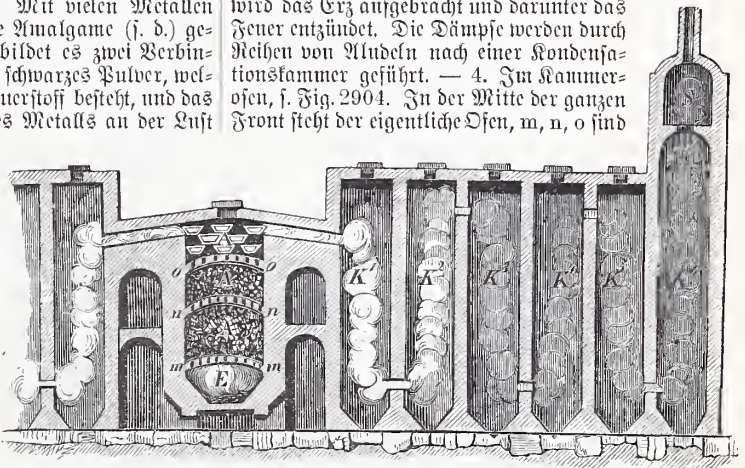 Mit vielen Metallen
e Amalgame (s. d.) ge=
bildet es zwei Verbin=
schwarzes Pulver, wel=
uerstoff besteht, und das
es Metalls an der Luft
wird das Erz aufgebracht und darunter das
Feuer entzündet. Die Dämpfe werden durch
Reihen von Aludeln nach einer Kondensa=
tionskammer geführt. — 4. Im Kammer=
ofen, s. Fig. 2904. In der Mitte der ganzen
Front steht der eigentliche Ofen, m, n, o sind
S
o A o
n n
m E m
K¹ K² K³